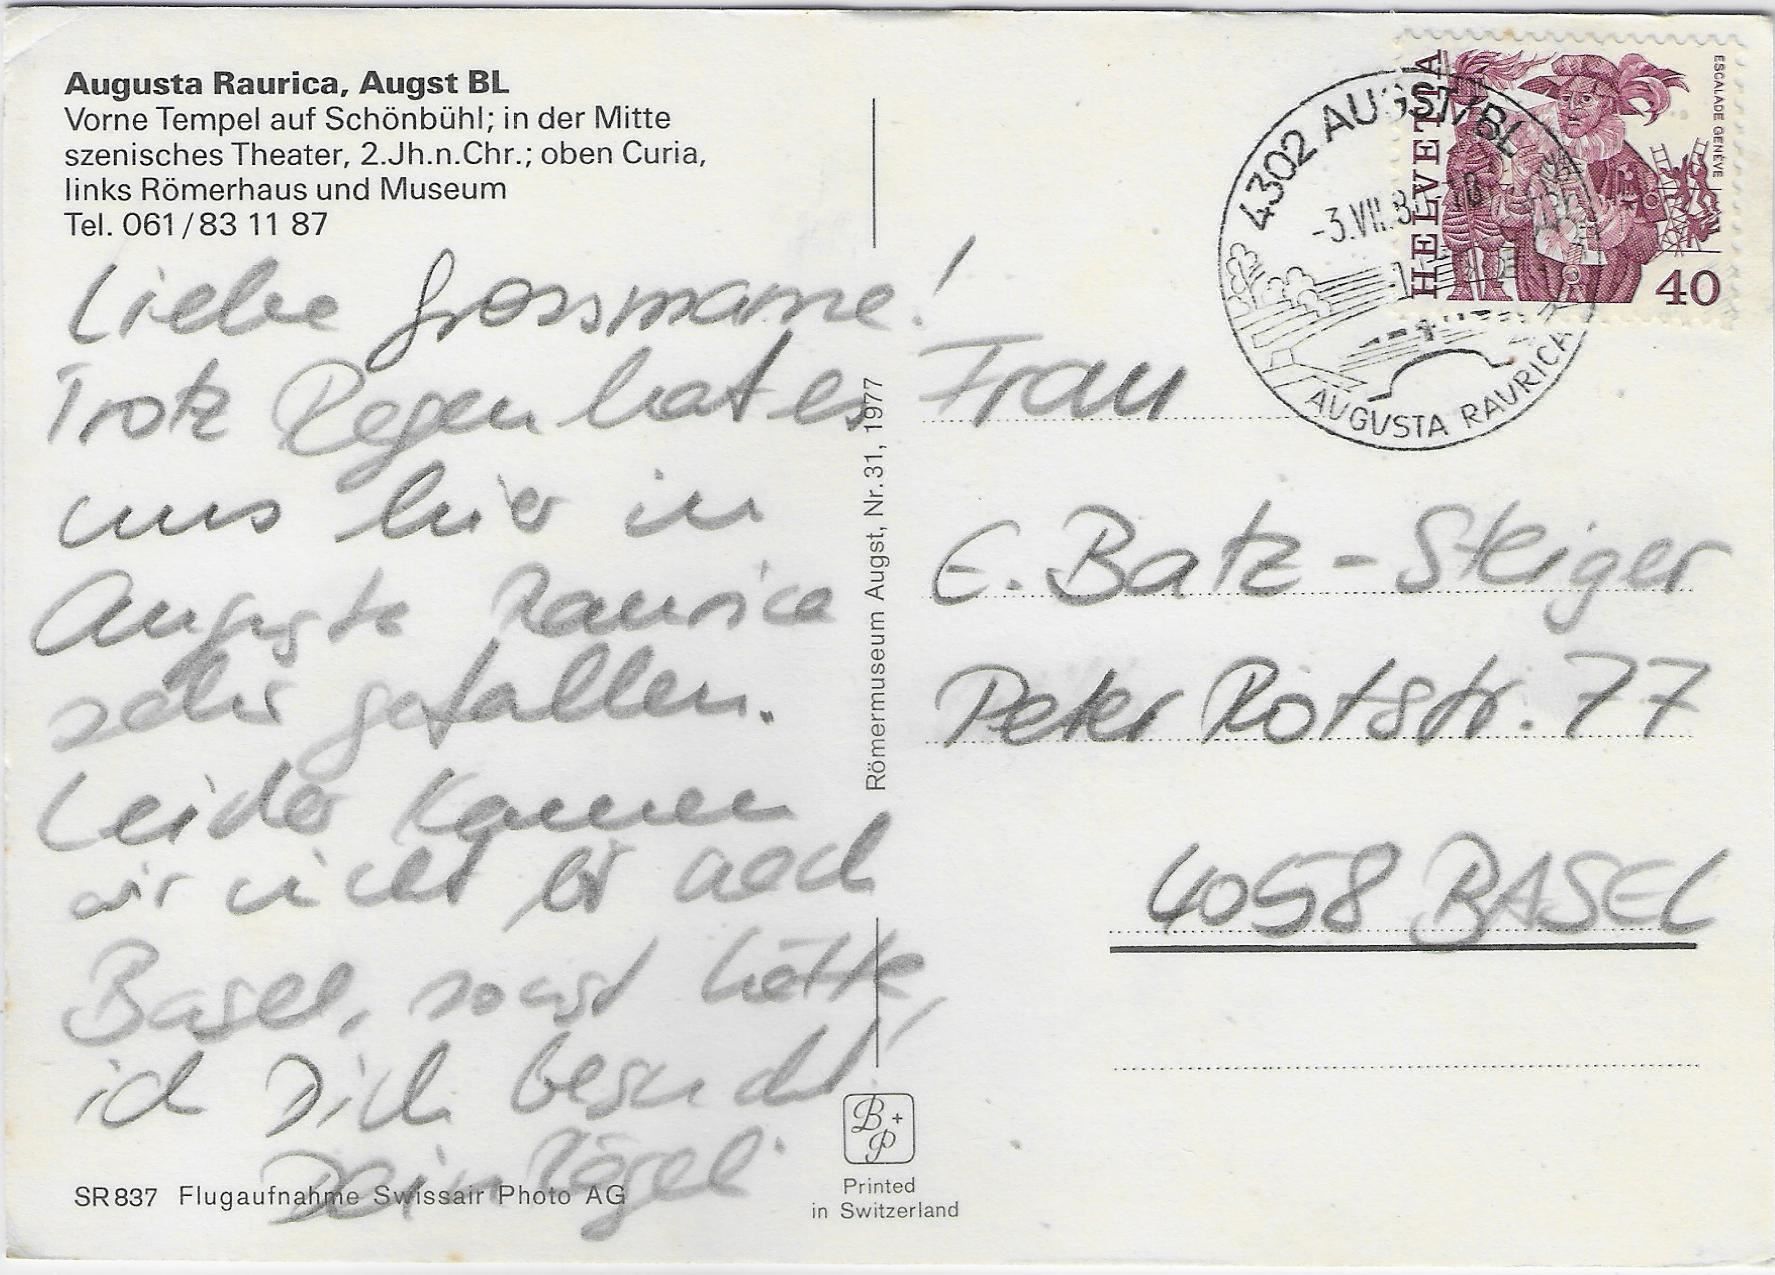 Augusta Raurica, Augst BL
Vorne Tempel auf Schönbühl; in der Mitte
szenisches Theater, 2.Jh.n.Chr.; oben Curia,
links Römerhaus und Museum
Tel. 061/83 11 87
Liebe Grossmame!
Trotz Regen hat es
uns hier in
Augusta Raurica
sehr gefallen.
Leider kamen
wir nicht bis nach
Basel, sonst hätte
ich Dich besucht!
Dein
SR 837 Flugaufnahme Swissair Photo AG
Römermuseum Augst, Nr. 31, 1977
B+P
Printed
in Switzerland
HELVETIA
ESCALADE GENÈVE
40
4302 AUGST/BL
-3.VII.8
AUGUSTA RAURICA
Frau
E. Batz-Steiger
Peter Rotstr. 77
4058 BASEL